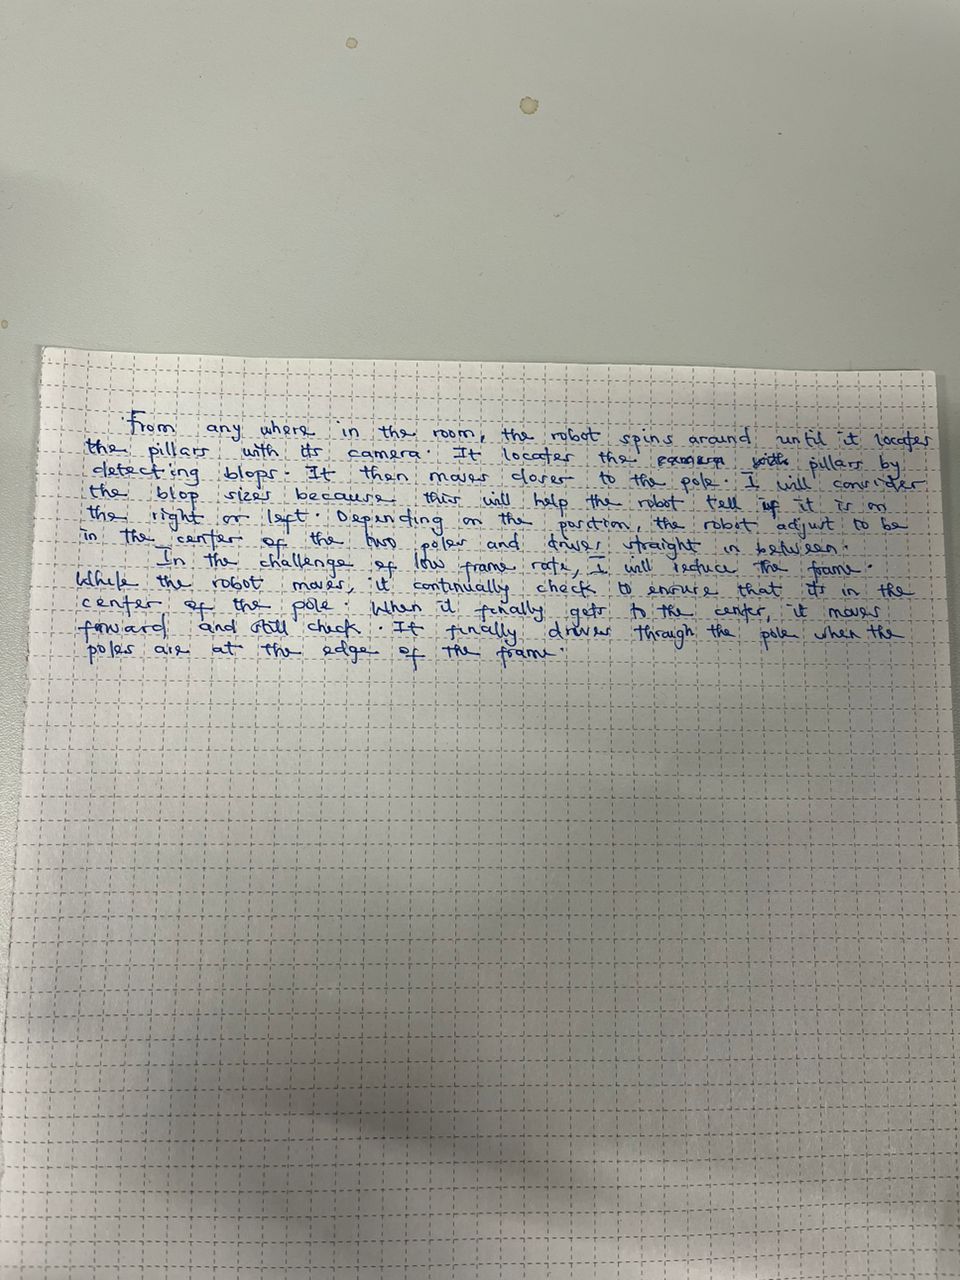 From any where in the room, the robot spins around until it locates
the pillars with its camera. It locates the pillars by
detecting blops. It then moves closer to the pole. I will consider
the blop sizes because this will help the robot tell if it is on
the right or left. Depending on the position, the robot adjust to be
in the center of the two poles and drives straight in between.
In the challenge of low frame rate, I will reduce the frame.
While the robot moves, it continually check to ensure that its in the
center of the pole. When it finally gets to the center, it moves
forward and still check. It finally drives through the pole when the
poles are at the edge of the frame.